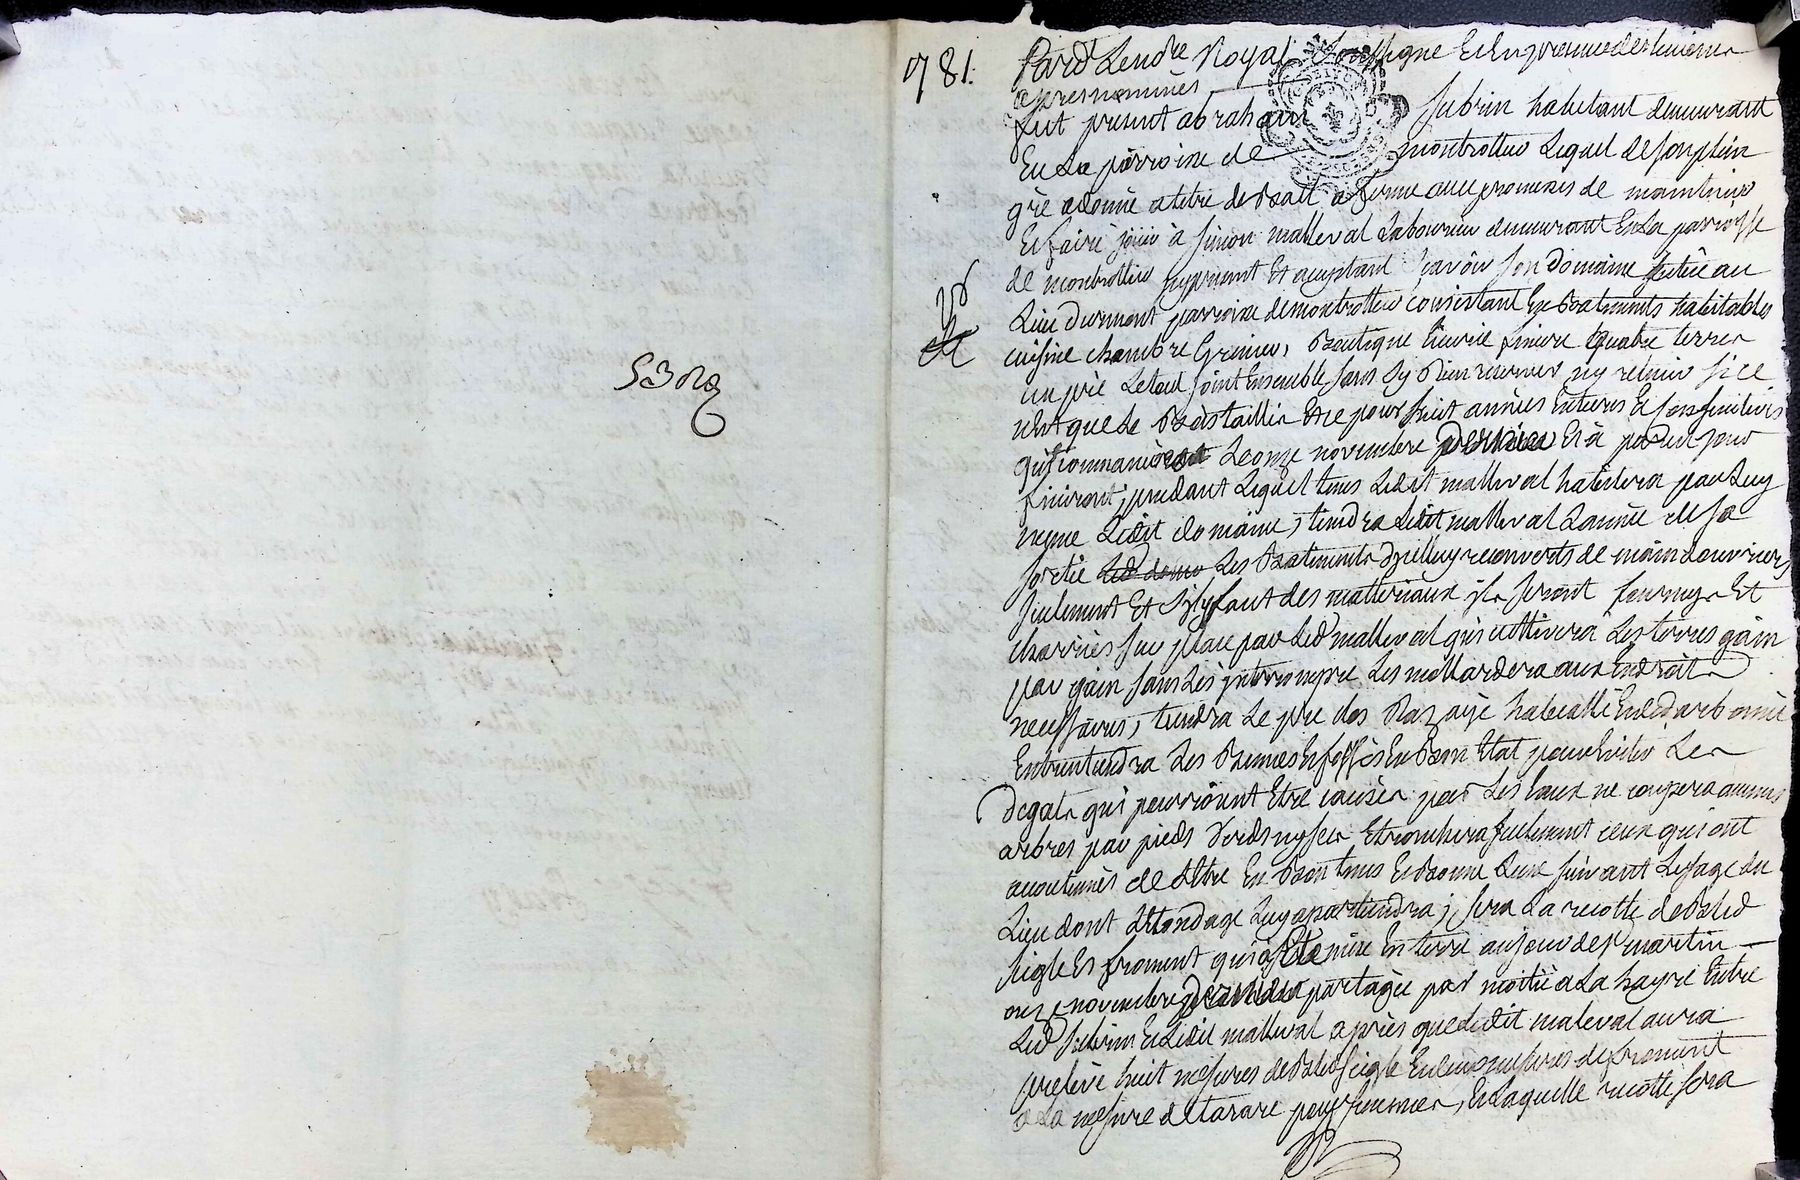 781.
Pard Le no.re Royal Soussigne Et En presence des temoins
apres nommés
fut present abraham Subrin habitant demeurant
En La parroisse de montrottier Lequel de son plein
gré a donné a titre de Bail a ferme avec promesses de maintenir
Et faire jouir à Simon malleval Laboureur demeurant En La parroisse
de montrottier present Et acceptant sçavoir son Domaine Situé au
Lieu du mont parroisse de montrottier consistant En Batiments habitables
cuisine chambre Grenier, Boutique Ecurie feniere quatre terres
un pré Le tout joint Ensemble sans sy Rien reserver ny retenir si ce
nest que Le Bois taillis Et ce pour huit années Entieres Et consecutives
qui commanceront Le onze novembre Et à pareil jour
finiront, pendant Lequel tems Ledit malleval habitera par Luy
meme Ledit domaine, tiendra Ledit malleval Lannée de sa
sortie Led dom Les Batiments dicelluy recouverts de main douvriers
seulement Et Sil faut des matteriaux ils seront fournys Et
charriés sur place par Led malleval qui cultivera Les terres gain
par gain sans Les interrompre Les mollardera aux Endroits
necessaires, tiendra Le pré des Razayé
Entretiendra Les Rases Et fossés En Bon Etat pour Eviter Les
Degats qui pourroient Etre causés par Les Eaux ne coupera aucuns
arbres par pieds Verds ny secs Et tronchera seulement ceux qui ont
accoutumés de Letre En Bon tems Et Bonne Lune suivant Lusage du
Lieu dont Letondage Luy apartiendra; sera La recolte de Bled
seigle Et froment qui a Eté mise En terre au jour de St martin
onze novembre partagée par moitié a La hayre Entre
Led Subrin Et Ledit malleval après que Ledit maleval aura
prelevé huit mesures de Bled seigle Et deux mesures de froment
a La mesure de tarare pour semer, Et Laquelle recolte sera